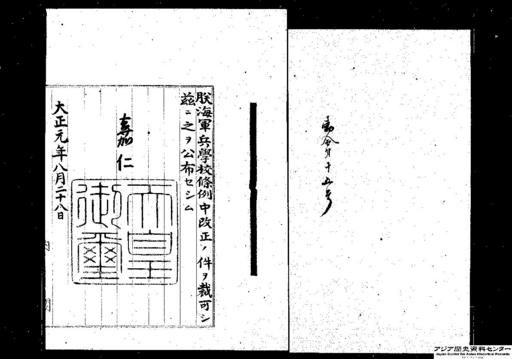 勅令第十五号
朕海軍兵學校條例中改正ノ件ヲ裁可シ
玆ニ之ヲ公布セシム
嘉仁
天皇御璽
大正元年八月二十八日
アジア歴史資料センター
Japan Center for Asian Historical Records